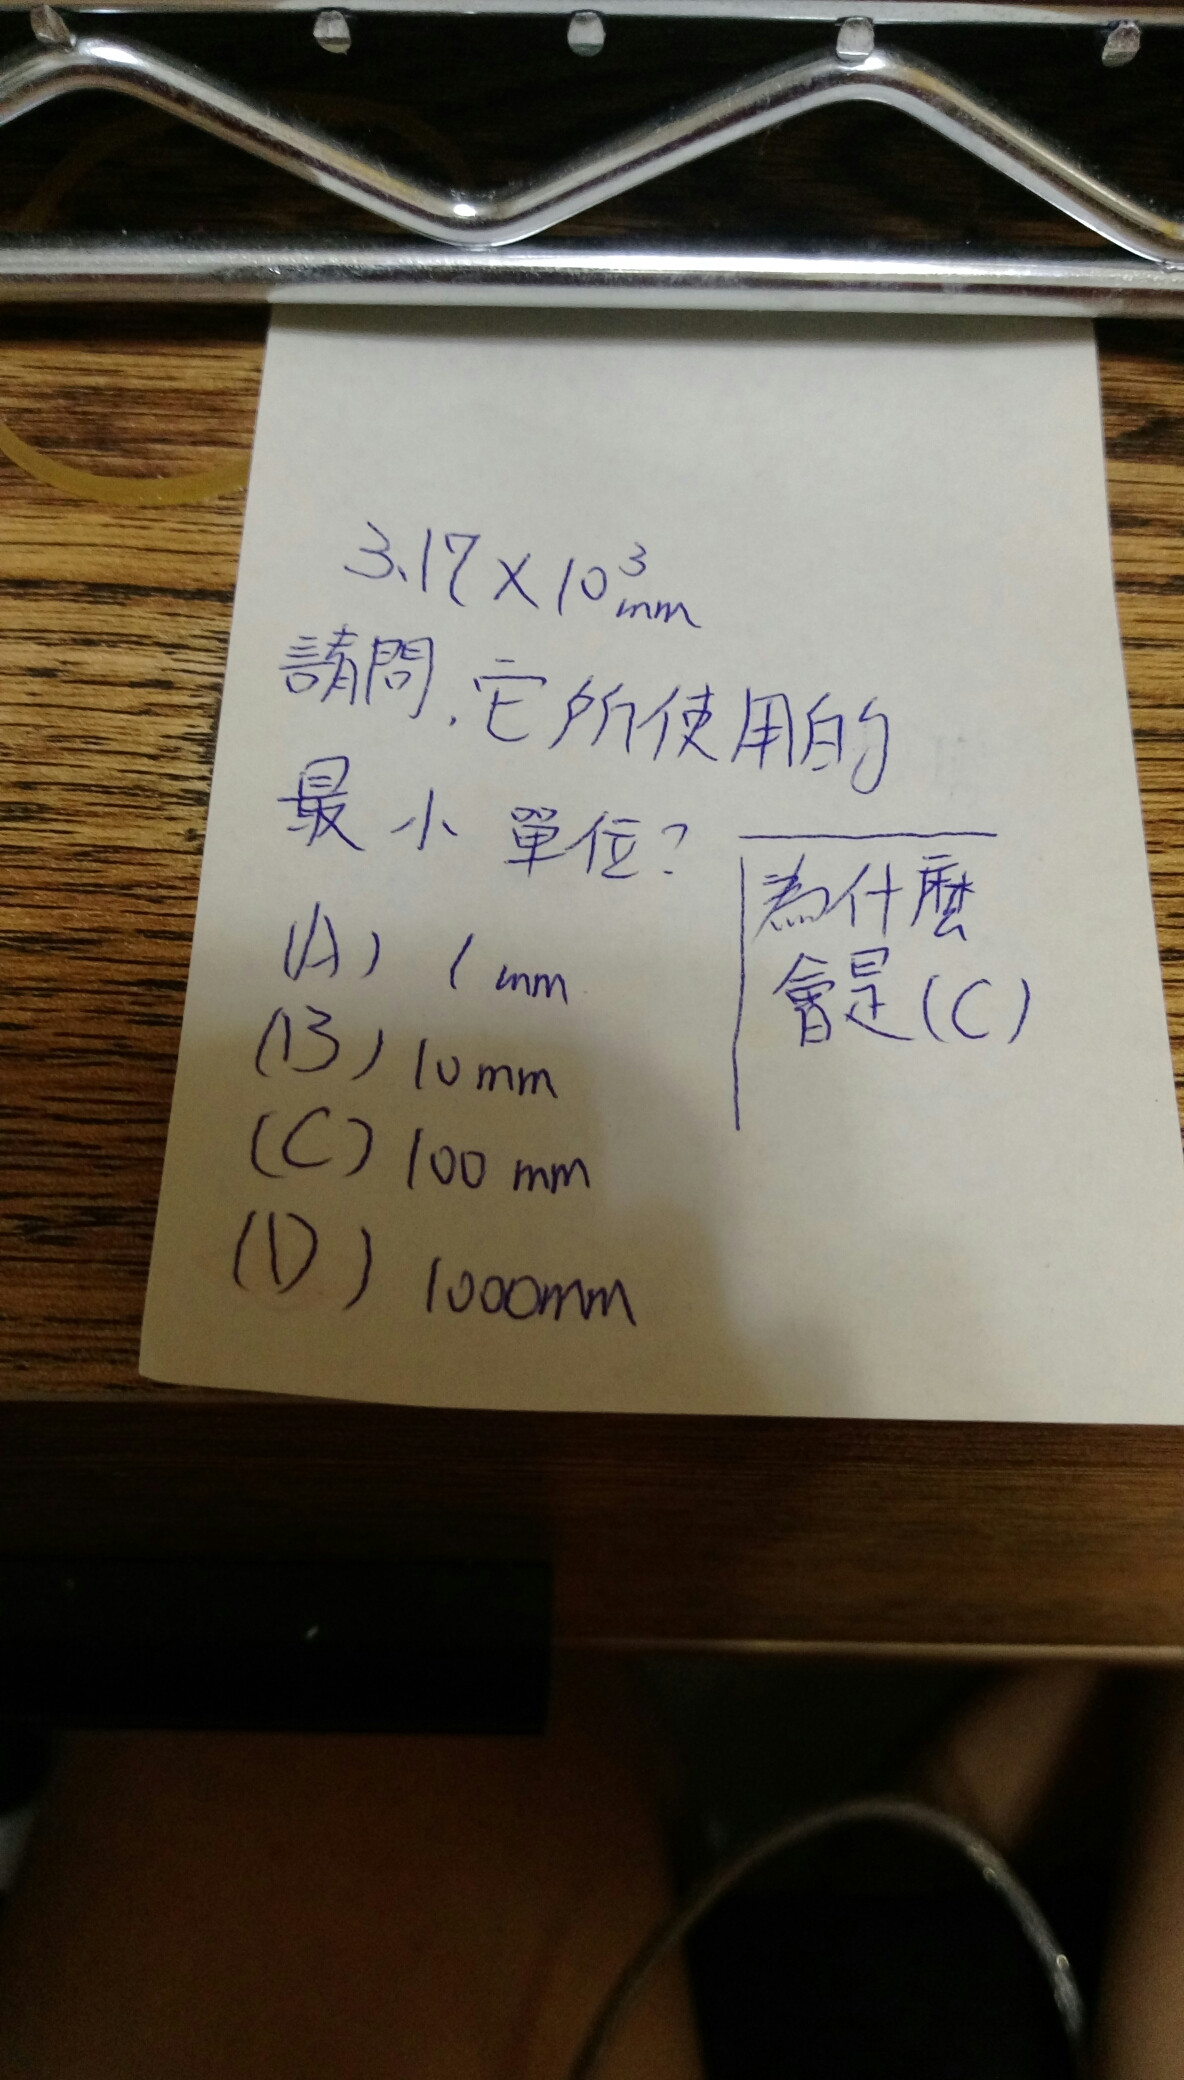 3.17×10³mm
請問,它所使用的
最小單位?
(A) 1mm
(B) 10mm
(C) 100mm
(D) 1000mm
為什麼
會是(C)